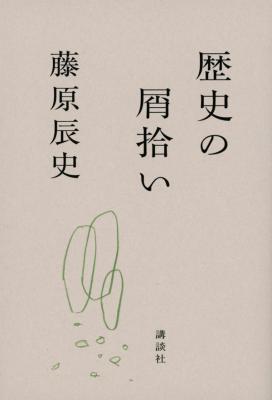 歴史の
屑拾い
藤原辰史
講談社